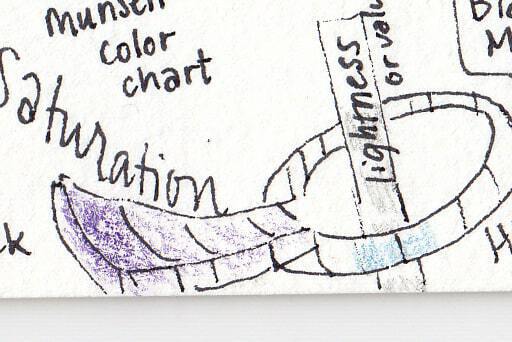 munsell
color
chart
Saturation
lightness
or valu
Bl
M
ck
H